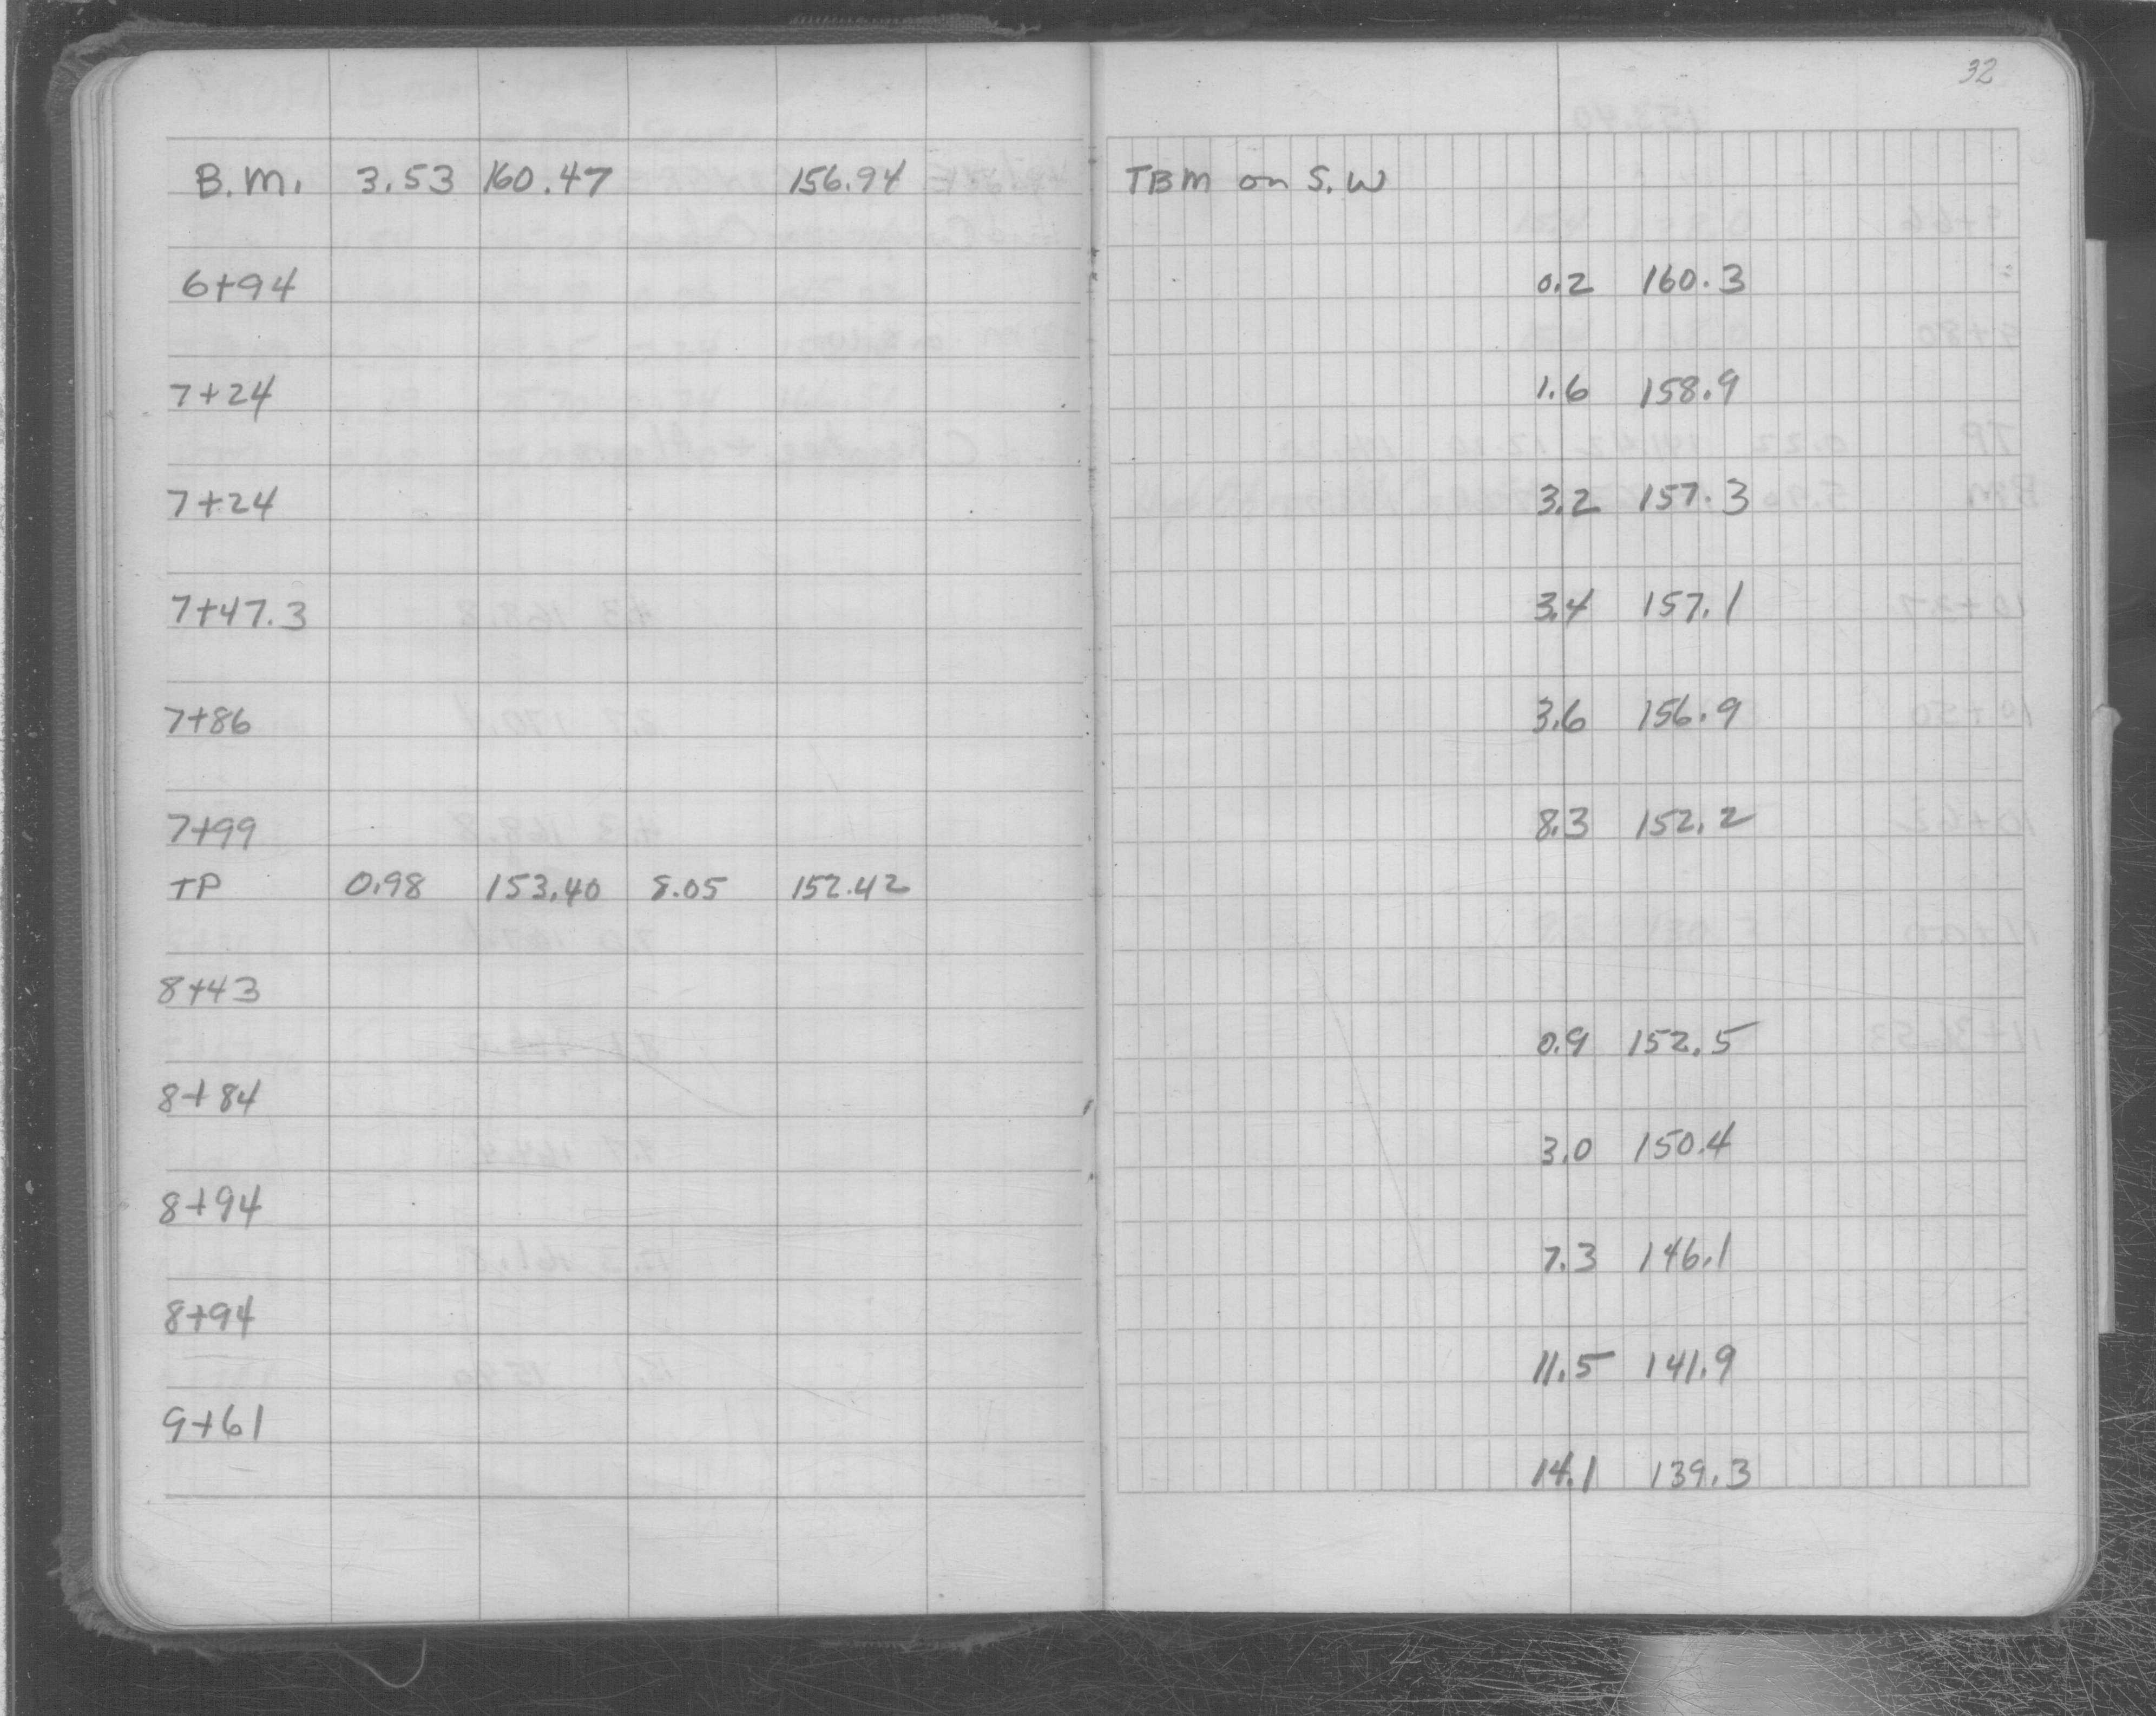 32
B.M. 3.53 160.47 156.94 TBM on S.W
6+94 0.2 160.3
7+24 1.6 158.9
7+24 3.2 157.3
7+47.3 3.4 157.1
7+86 3.6 156.9
7+99 8.3 152.2
TP 0.98 153.40 8.05 152.42
8+43
0.9 152.5
8+84
3.0 150.4
8+94
7.3 146.1
8+94
11.5 141.9
9+61
14.1 139.3